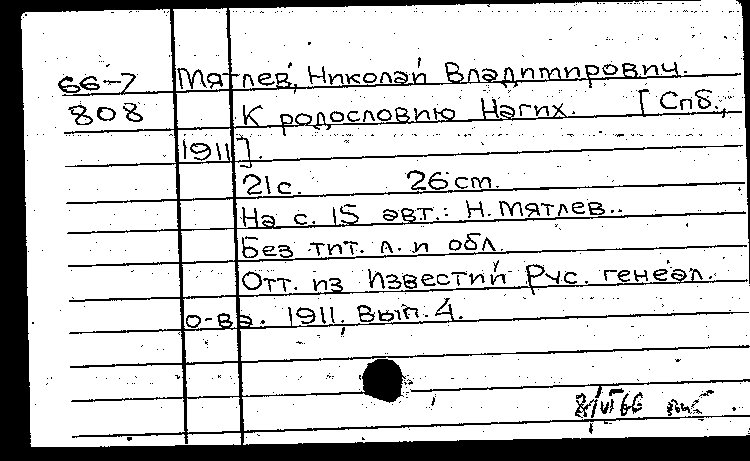 66-7 Мятлев, Николай Владимирович.
808 К родословию Нагих. [Спб.,
1911].
21с. 26 cm.
На с. 15 авт.: Н. Мятлев..
Без тит. л. и обл.
Отт. из Известий Рус. генеал.
о-ва. 1911, Вып. 4.
8/VI 66